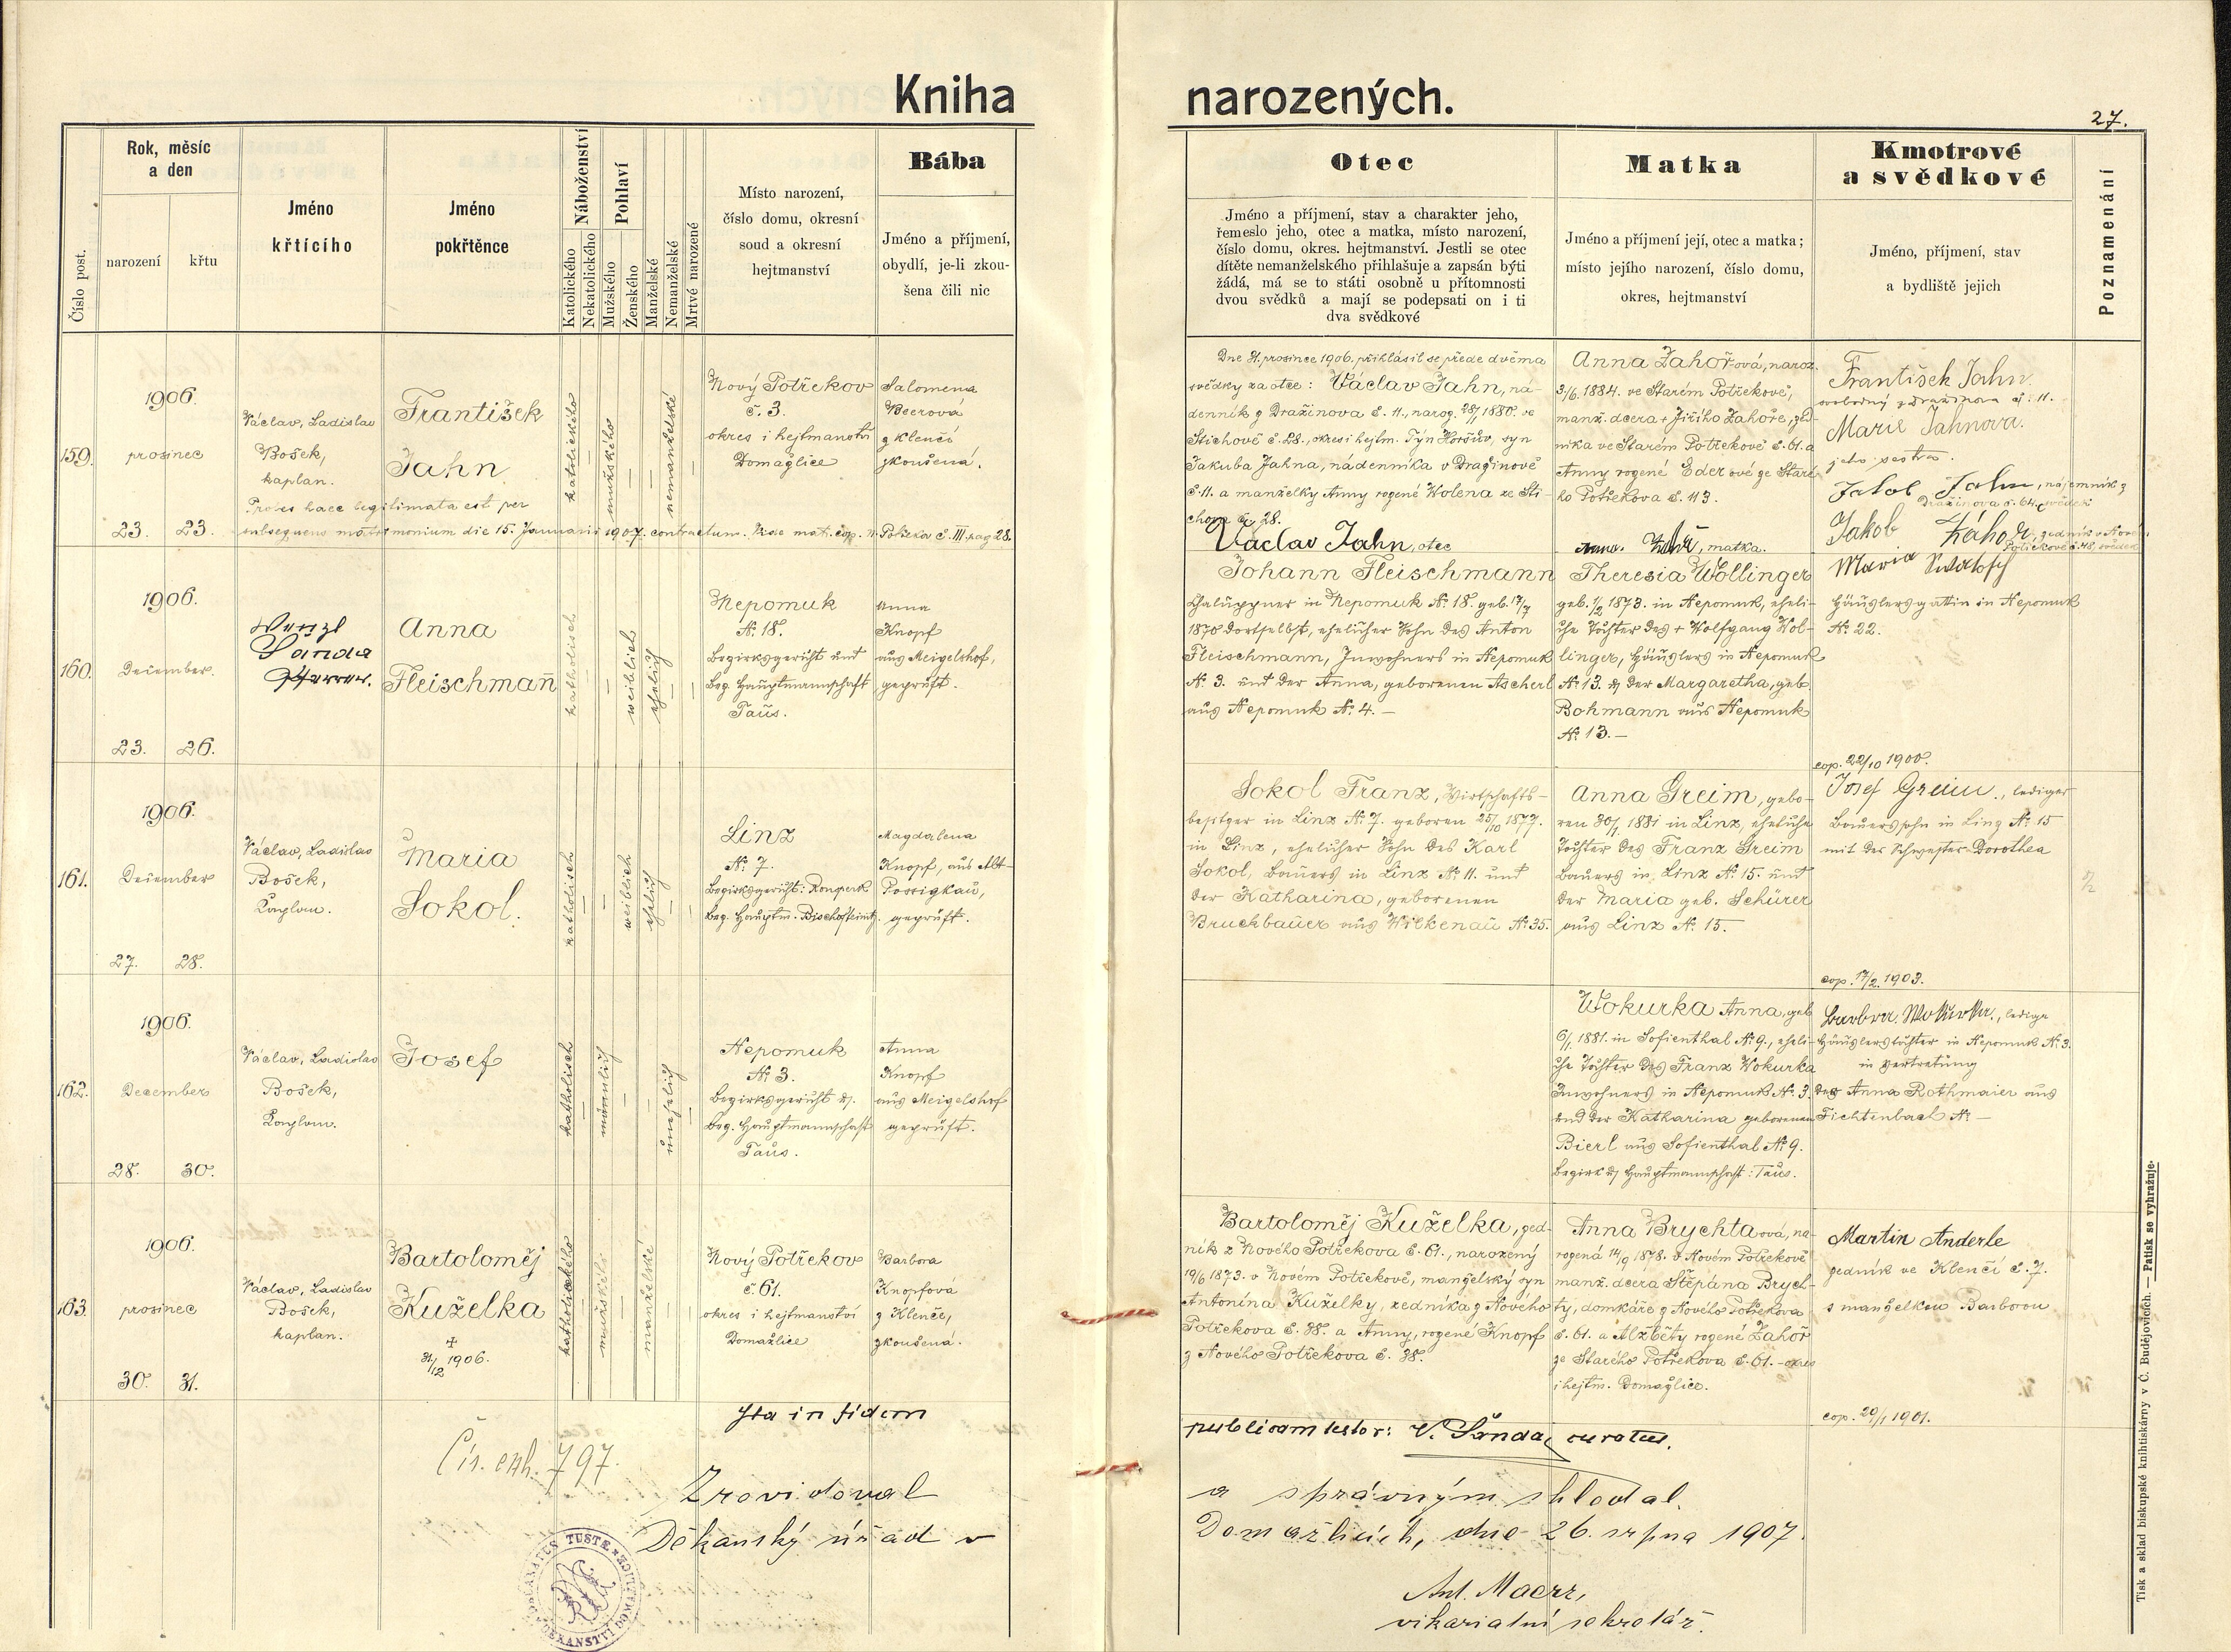 Kniha narozených.
27.
Číslo post.
Rok, měsíc
a den
narození
křtu
Jméno
křtícího
Jméno
pokřtěnce
Náboženství
Katolického
Nekatolického
Pohlaví
Mužského
Ženského
Manželské
Nemanželské
Mrtvě narozené
Místo narození,
číslo domu, okresní
soud a okresní
hejtmanství
Bába
Jméno a příjmení,
obydlí, je-li zkou-
šena čili nic
Otec
Jméno a příjmení, stav a charakter jeho,
řemeslo jeho, otec a matka, místo narození,
číslo domu, okres. hejtmanství. Jestli se otec
dítěte nemanželského přihlašuje a zapsán býti
žádá, má se to státi osobně u přítomnosti
dvou svědků a mají se podepsati on i ti
dva svědkové
Matka
Jméno a příjmení její, otec a matka;
místo jejího narození, číslo domu,
okres, hejtmanství
Kmotrové
a svědkové
Jméno, příjmení, stav
a bydliště jejich
Poznamenání
159.
1906.
prosinec
23. 23.
Václav, Ladislav
Bošek,
kaplan.
František
Jahn
katolického
mužského
nemanželské
Nový Potřekov
č. 3.
okres i hejtmanství
Domažlice
Salomena
Beerová
z Klenčí
zkoušená.
Proles haec legitimata est per
subsequens matrimonium die 15. Januarii 1907. contractum. Vide mat. cop. N. Potřekov č. III. pag 28.
Dne 31. prosince 1906. přihlásil se přede dvěma
svědky za otce: Václav Jahn, ná-
denník z Dražinova č. 11., naroz. 28/1 1880. ve
Stichově č. 28., okres i hejtm. Týn Horšův, syn
Jakuba Jahna, nádenníka v Dražinově
č. 11. a manželky Anny rozené Wolena ze Sti-
chova č. 28.
Václav Jahn, otec
Anna Zahořová, naroz.
3/6. 1884. ve Starém Potřekově,
manž. dcera + Jiřího Zahoře, zed-
níka ve Starém Potřekově č. 61. a
Anny rozené Ederové ze Staré-
ho Potřekova č. 113.
matka.
František Jahn.
svobodný z Dražinova č. 11.
Marie Jahnova.
jeho sestra.
Jakob Jahn, nájemník z
Dražinova č. 64. svědek
Jakob Záhoř, zedník v Nové
Potřekově č. 48, svědek
160.
1906.
December.
23. 26.
Wenzl
Šanda
Pfarrer.
Anna
Fleischmann
katholisch
weiblich
ehelich
Nepomuk
No. 18.
Bezirksgericht und
Bez. Hauptmannschaft
Taus.
Anna
Knopf
aus Meigelshof,
geprüft.
Johann Fleischmann
Chaluppner in Nepomuk No. 18. geb. 17/7
1870 dortselbst, ehelicher Sohn des Anton
Fleischmann, Inwohners in Nepomuk
No. 3. und der Anna, geborenen Ascherl
aus Nepomuk No. 4. —
Theresia Wollinger
geb. 1/2 1873. in Nepomuk, eheli-
che Tochter des + Wolfgang Wol-
linger, Häuslers in Nepomuk
No. 13. & der Margaretha, geb.
Bohmann aus Nepomuk
No. 13. —
Maria Swatosch
Häuslersgattin in Nepomuk
No. 22.
cop. 22/10 1900.
161.
1906.
December
27. 28.
Václav, Ladislav
Bošek,
Kaplan.
Maria
Sokol.
katholisch
weiblich
ehelich
Linz
No. 7.
Bezirksgericht: Ronsperk
Bez. Hauptm. Bischofteinitz.
Magdalena
Knopf, aus Alt-
Possigkau,
geprüft.
Sokol Franz, Wirtschafts-
besitzer in Linz No. 7. geboren 25/10 1877.
in Linz, ehelicher Sohn des Karl
Sokol, Bauers in Linz No. 11. und
der Katharina, geborenen
Bruckbauer aus Wilkenau No. 35.
Anna Greim, gebo-
ren 30/1. 1881 in Linz, eheliche
Tochter des Franz Greim
Bauers in Linz No. 15. und
der Maria geb. Schürer
aus Linz No. 15.
Josef Greim., lediger
Bauerssohn in Linz No. 15
mit der Schwester Dorothea
cop. 17/2. 1903.
162.
1906.
December
28. 30.
Václav, Ladislav
Bošek,
Kaplan.
Josef
katholisch
männlich
unehelich
Nepomuk
No. 3.
Bezirksgericht u.
Bez. Hauptmannschaft
Taus.
Anna
Knopf
aus Meigelshof
geprüft.
Wokurka Anna, geb.
6/1. 1881. in Sofienthal No. 9., eheli-
che Tochter des Franz Wokurka
Inwohners in Nepomuk No. 3.
und der Katharina geborenen
Bierl aus Sofienthal No. 9.
Bezirk u. Hauptmannschaft: Taus.
Barbara Wokurka., ledige
Häuslerstochter in Nepomuk No. 3.
in Vertretung
der Anna Rothmaier aus
Fichtenbach No. —
163.
1906.
prosinec
30. 31.
Václav, Ladislav
Bošek,
kaplan.
Bartoloměj
Kuželka
+
31/12 1906.
katholického
mužského
manželské
Nový Potřekov
č. 61.
okres i hejtmanství
Domažlice
Barbora
Knopfová
z Klenče,
zkoušená.
Bartoloměj Kuželka, zed-
ník z Nového Potřekova č. 61., narozený
19/6 1873. v Novém Potřekově, manželský syn
Antonína Kuželky, zedníka z Nového
Potřekova č. 38. a Anny, rozené Knopf
z Nového Potřekova č. 38.
Anna Brychtaová, na-
rozená 14/9 1878. v Novém Potřekově
manž. dcera Štěpána Brych-
ty, domkáře z Nového Potřekova
č. 61. a Alžběty rozené Zahoř
ze Starého Potřekova č. 61. - okres
i hejtm. Domažlice.
Martin Anderle
zedník ve Klenčí č. 7.
s manželkou Barborou
cop. 29/1 1901.
Ita in fidem
publicam testor: V. Šanda, curatus.
Čís. exh. 797.
Zrevidoval a správným shledal.
Děkanský úřad v Domažlicích, dne 26. srpna 1907.
Ant. Maerz,
vikariatní sekretář.
Tisk a sklad biskupské knihtiskárny v Č. Budějovicích. — Patisk se vyhražuje.